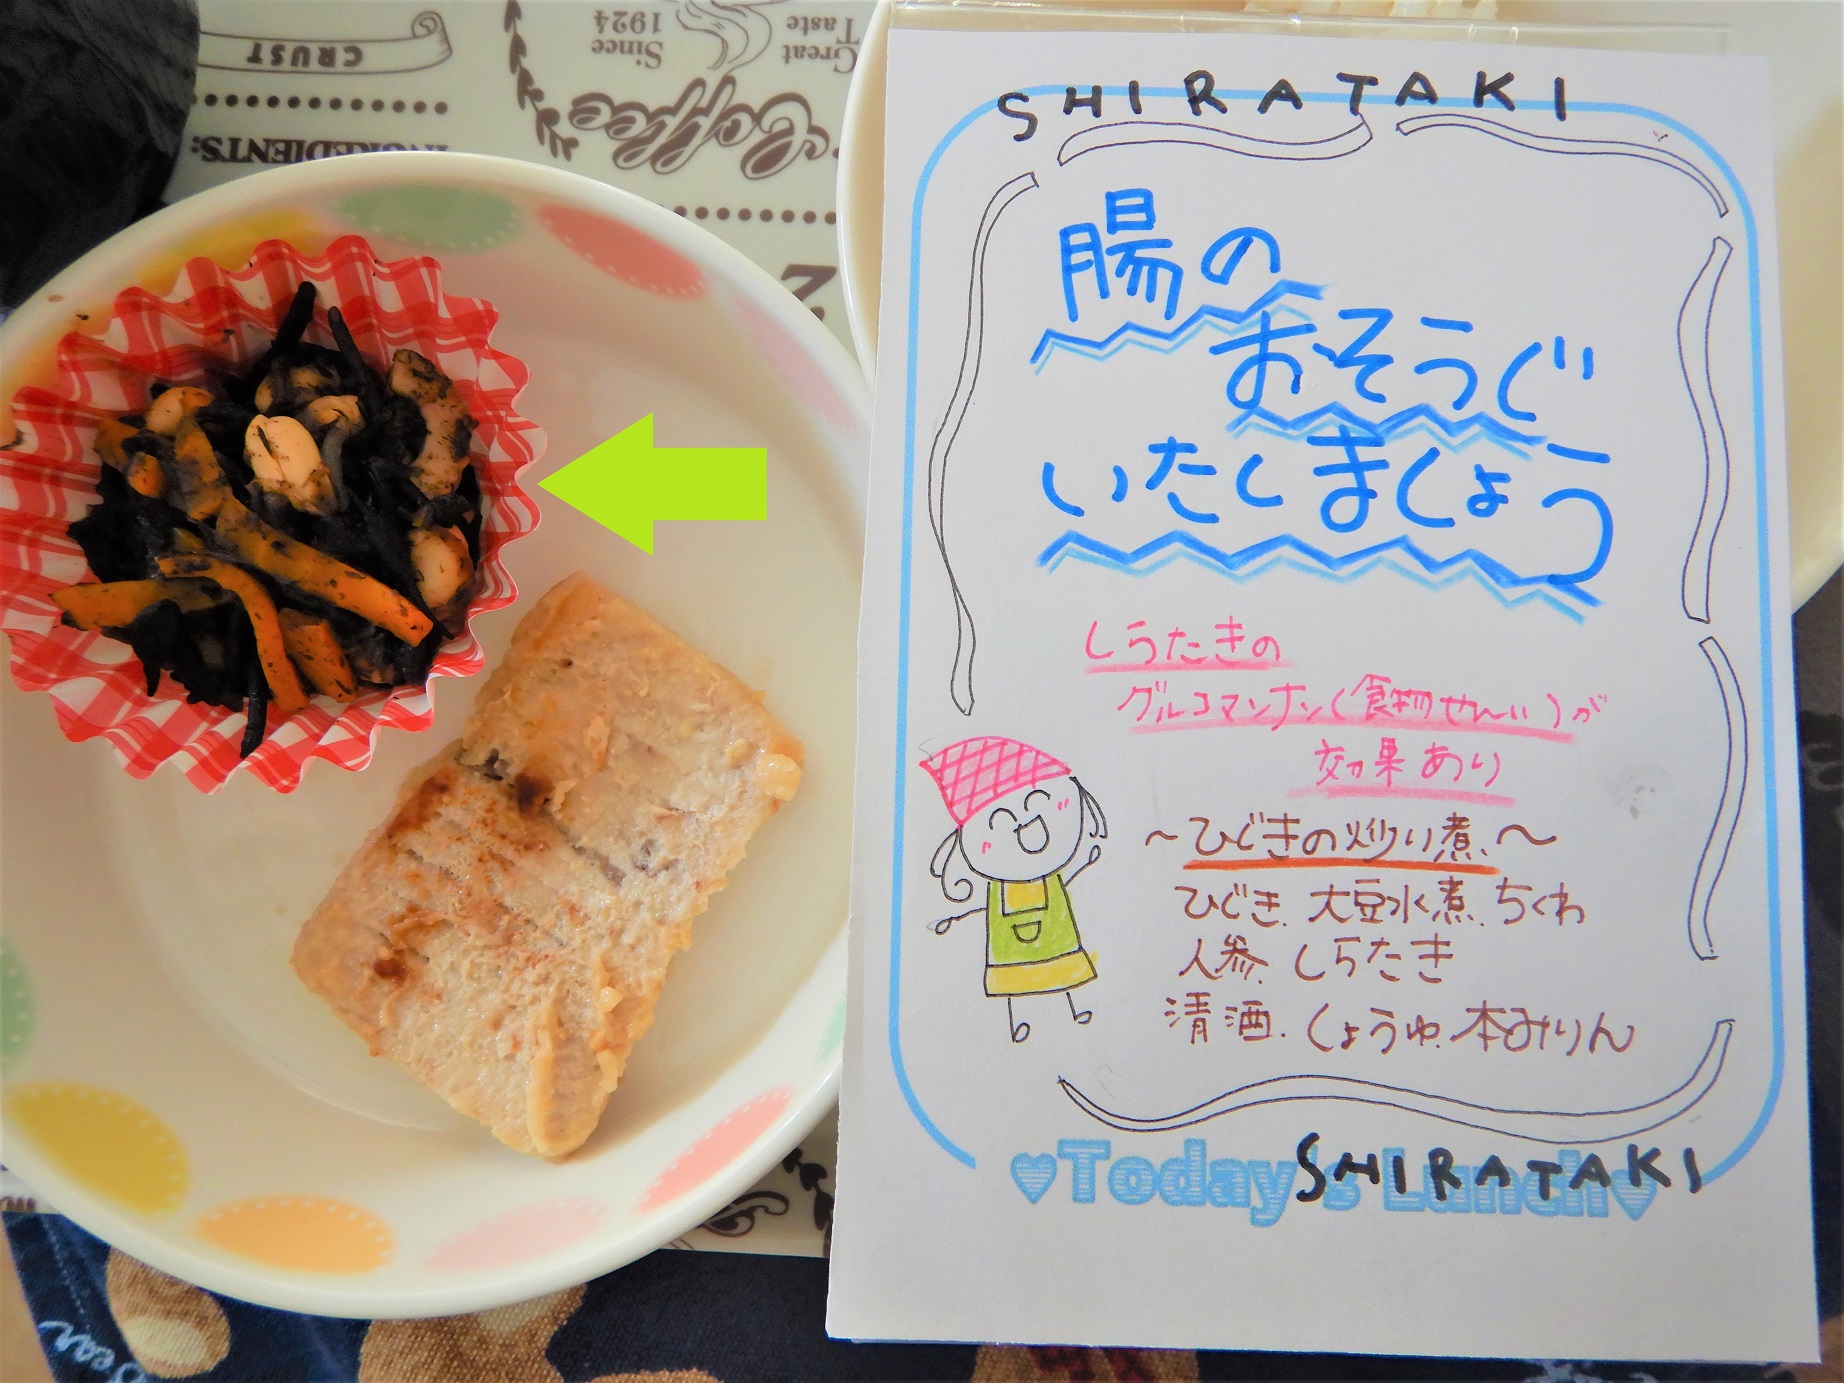 CRUST
INGREDIENTS:
Since
1924
Great
Taste
Coffee
SHIRATAKI
腸の
おそうじ
いたしましょう
しらたきの
グルコマンナン(食物せんい)が
効果あり
~ひじきの炒り煮~
ひじき.大豆水煮.ちくわ
人参.しらたき
清酒.しょうゆ.本みりん
♥Today's Lunch♥
SHIRATAKI